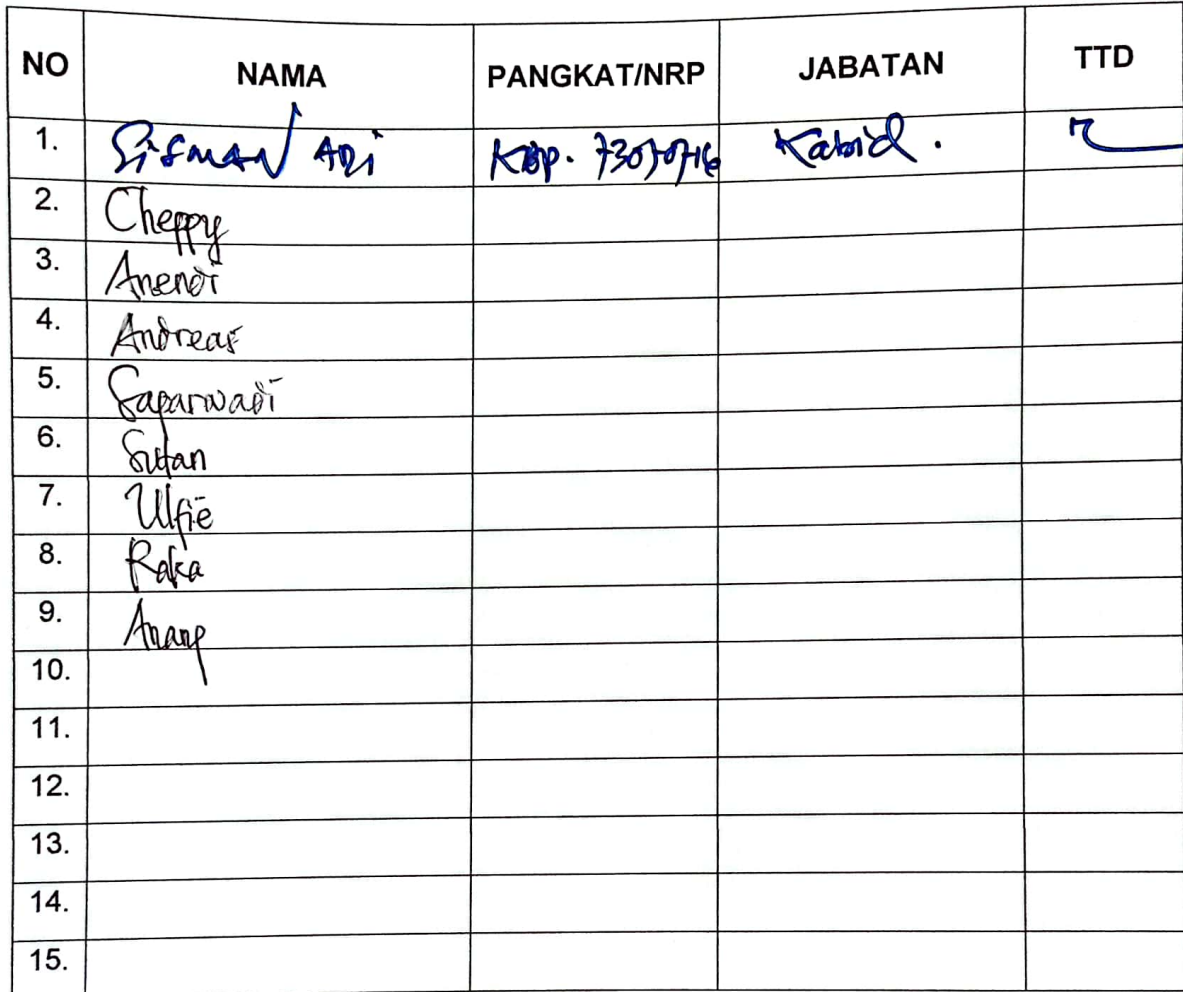 NO NAMA PANGKAT/NRP JABATAN TTD
1. Sisman Adi Kbp. 73050716 Kabid.
2. Cheppy
3. Anendi
4. Andreas
5. Saparwadi
6. Sutan
7. Ulfie
8. Raka
9. Anang
10.
11.
12.
13.
14.
15.